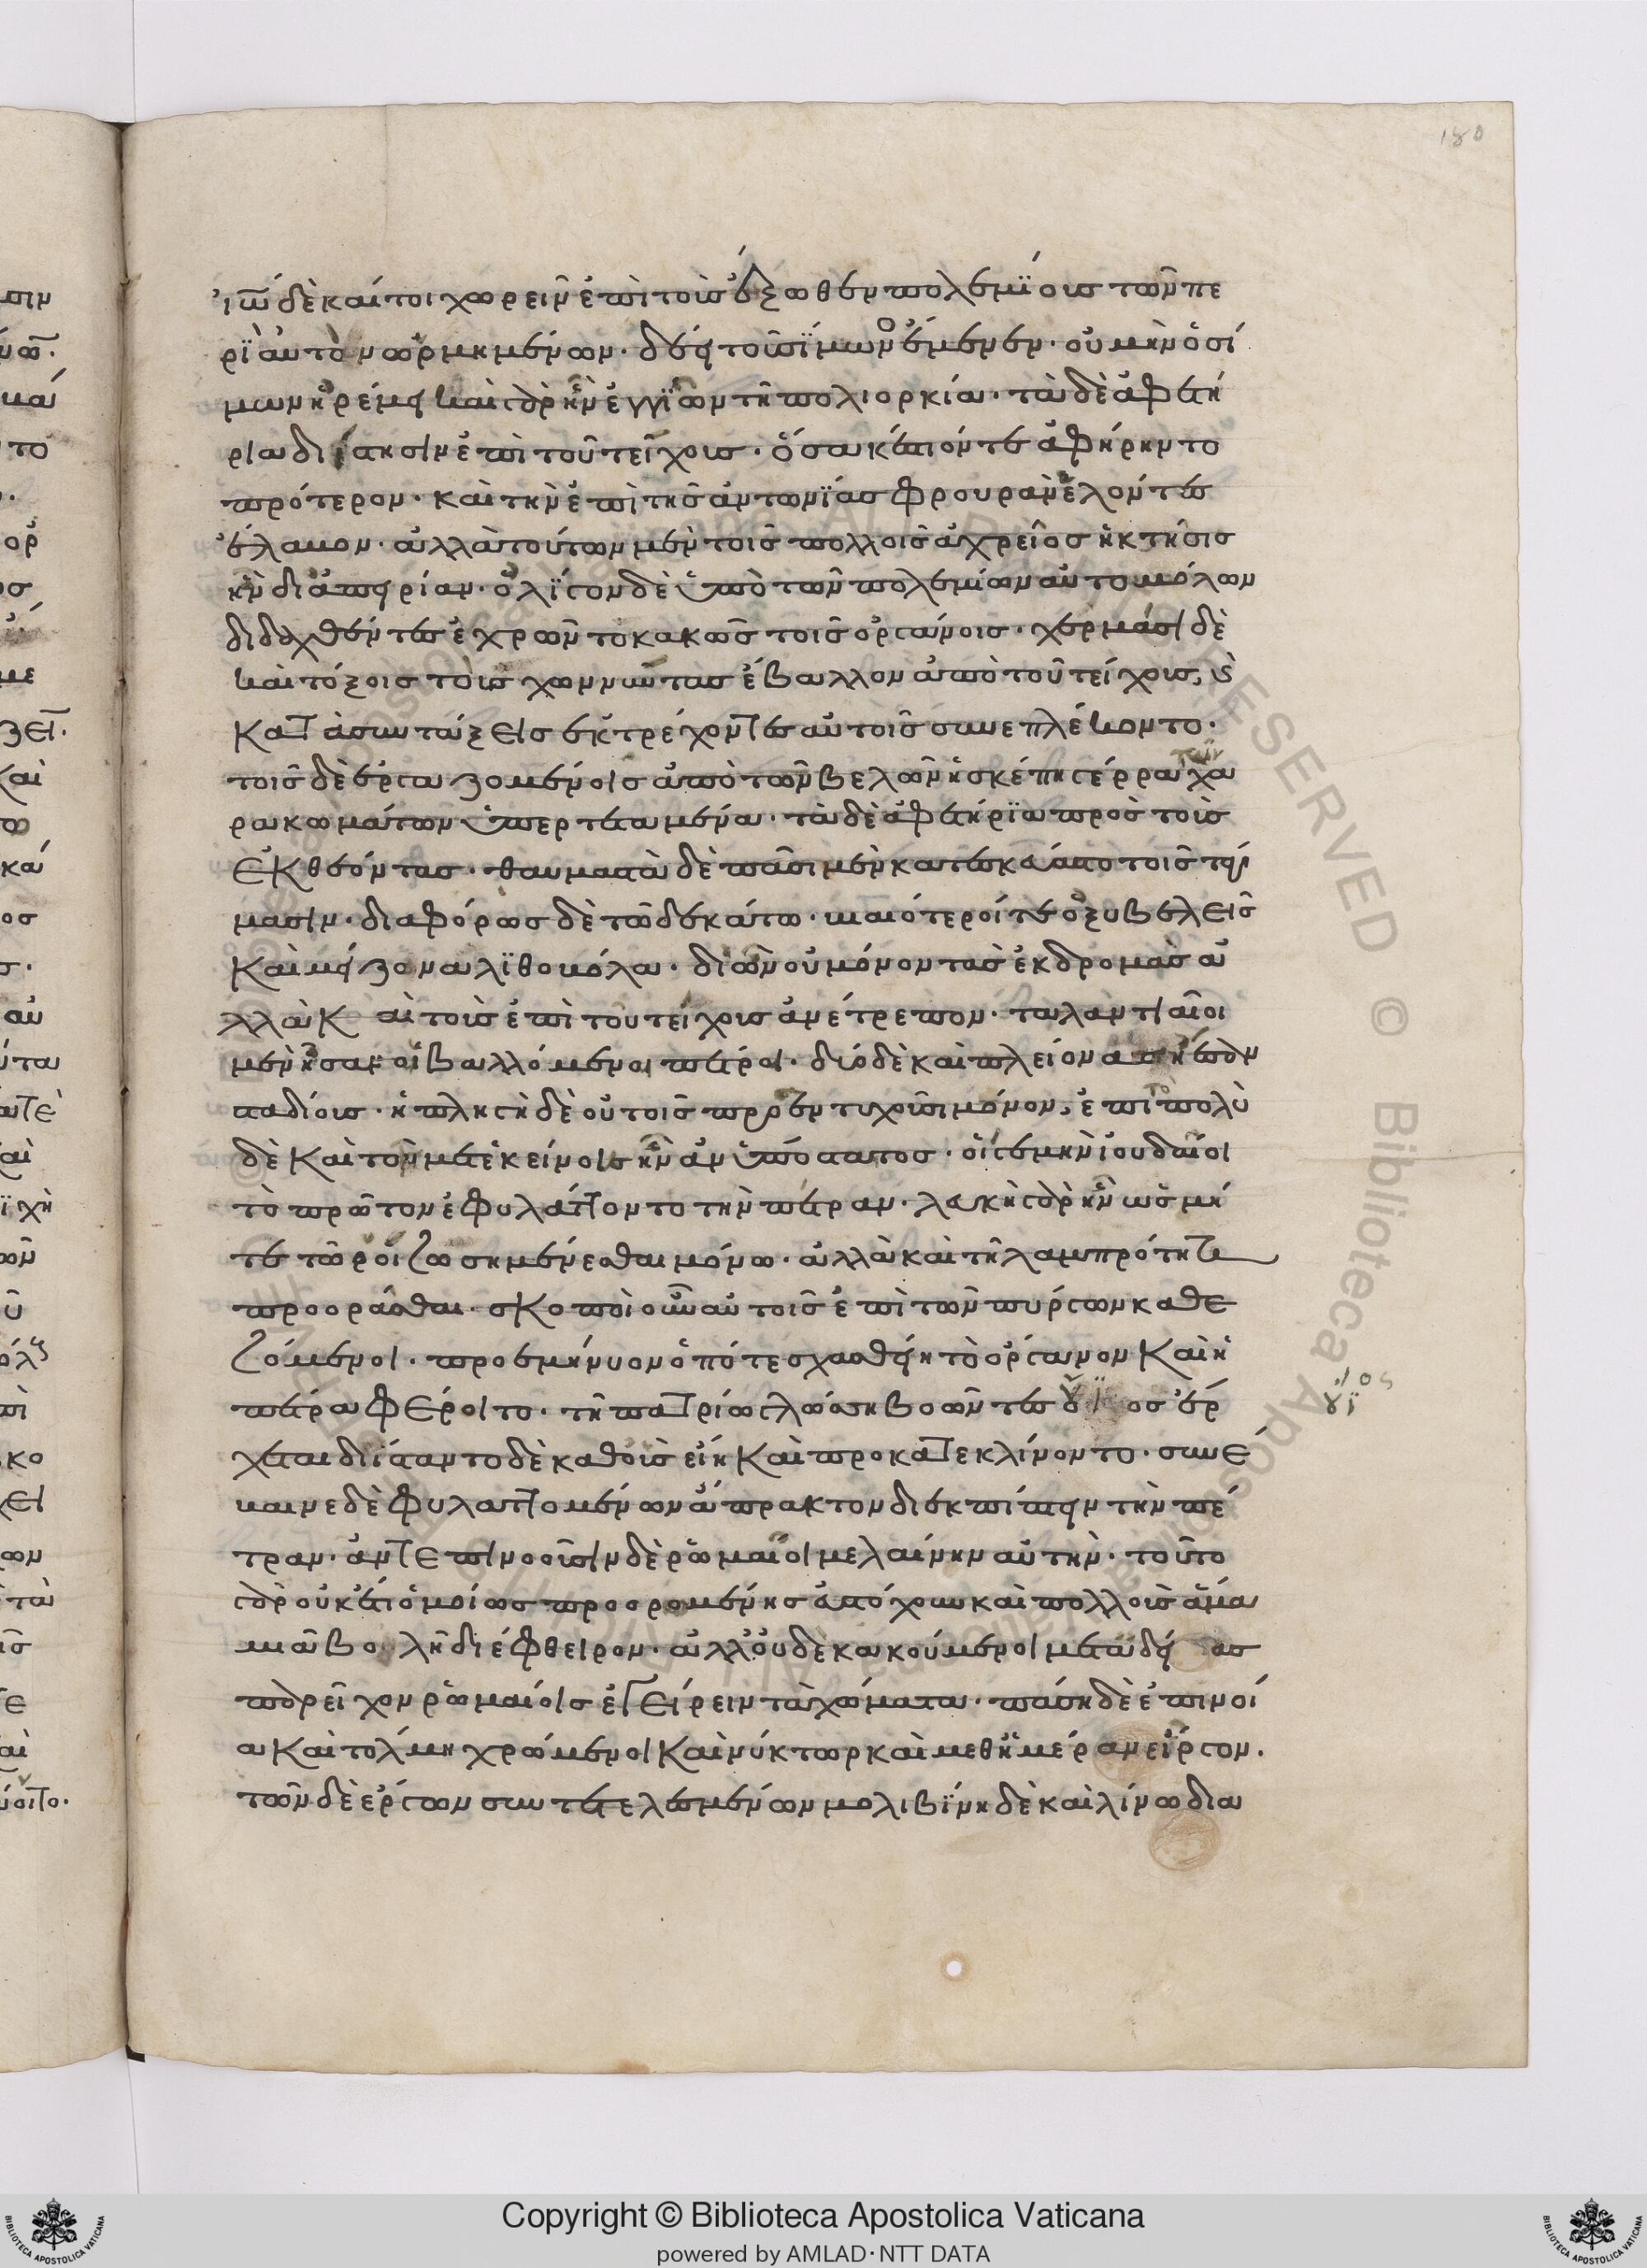 180
ἰω δὲ καίτοι χωρεῖν ἐπὶ τοὺς ἔξωθεν πολεμίους τῶν πε
ρὶ αὐτὸν ὡρμημένων. δέει τοῦ σίμωνος ἔμενεν. οὐ μὴν ὁ σί
μων ἠρέμει καὶ γὰρ ἦν ἐγγίων τῆ πολιορκία. τὰ δὲ ἀφετή
ρια διίστησιν ἐπὶ τοῦ τείχους. ὅσα κέστιόν τε ἀφήρηντο
πρότερον. καὶ τὴν ἐπὶ τῆς ἀντωνίας φρουρὰν ἑλόντες
ἔλαβον. ἀλλὰ τούτων μὲν τοῖς πολλοῖς ἀχρεῖος ἡ κτῆσις
ἦν δι' ἀπειρίαν. ὀλίγον δὲ ὑπὸ τῶν πολεμίων αὐτομόλων
διδαχθέντες ἐχρῶντο κακῶς τοῖς ὀργάνοις. χερμάσι δὲ
καὶ τόξοις τοὺς χωννῦντας ἔβαλλον ἀπὸ τοῦ τείχους, καὶ
κατὰ συντάξεις ἐκτρέχοντες αὐτοῖς συνεπλέκοντο.
τοῖς δὲ ἐργαζομένοις ἀπὸ τῶν βελῶν ἡ σκέπη γέρρα τῶν χα
ρακωμάτων ὑπερτεταμένα. τὰ δὲ ἀφετήρια πρὸς τοὺς
ἐκθέοντας. θαυμαστὰ δὲ πᾶσι μὲν κατεσκεύαστο τοῖς τάγ
μασιν. διαφόρως δὲ τῶ δεκάτω. βιαιότεροί τε ὀξυβελεῖς
καὶ μείζονα λιθοβόλα. δι' ὧν οὐ μόνον τὰς ἐκδρομὰς ἀ
λλὰ καὶ τοὺς ἐπὶ του τείχους ἀνέτρεπον. ταλαντιαῖοι
μὲν ἦσαν οἱ βαλλόμενοι πέτροι. δύο δὲ καὶ πλείονα ἤεσαν
σταδίους. ἡ πληγὴ δὲ οὐ τοῖς προεντυχοῦσι μόνον, ἐπὶ πολὺ
δὲ καὶ τοῖς μετ' ἐκείνοις ἦν ἀνυπόστατος. οἵ γε μὴν ἰουδαῖοι
τὸ πρῶτον ἐφυλάττοντο τὴν πέτραν. λευκὴ γὰρ ἦν ὡς μή
τε τῶ ῥοίζω σημαίνεσθαι μόνω. ἀλλὰ καὶ τῆ λαμπρότητι
προορᾶσθαι. σκοποὶ οὖν αὐτοῖς ἐπὶ τῶν πύργων καθε
ζόμενοι. προεμήνυον ὁπότε σχασθείη τὸ ὄργανον καὶ ἡ
πέτρα φέροιτο. τῆ πατρίω γλώσση βοῶντες ὁ ἰὸς ἔρ
χεται διίσταντο δὲ καθ' οὓς εἴη καὶ προκατεκλίνοντο. συνέ
βαινε δὲ φυλαττομένων ἄπρακτον διεκπίπτειν τὴν πέ
τραν. ἀντεπινοοῦσιν δὲ ῥωμαῖοι μελαίνειν αὐτήν. τοῦτο
γὰρ οὐκέτι ὁμοίως προορωμένης εὐστόχουν καὶ πολλοὺς ἅμα
μιᾶ βολῆ διέφθειρον. ἀλλ' οὐδὲ κακούμενοι μετὰ δέους
παρεῖχον ῥωμαίοις ἐγείρειν τὰ χώματα. πάση δὲ ἐπινοί
α καὶ τόλμη χρώμενοι καὶ νύκτωρ καὶ μεθ' ἡμέραν εἶργον.
τῶν δὲ ἔργων συντετελεσμένων μολιβίνη δὲ καὶ λίνω δια
Copyright © Biblioteca Apostolica Vaticana
powered by AMLAD·NTT DATA